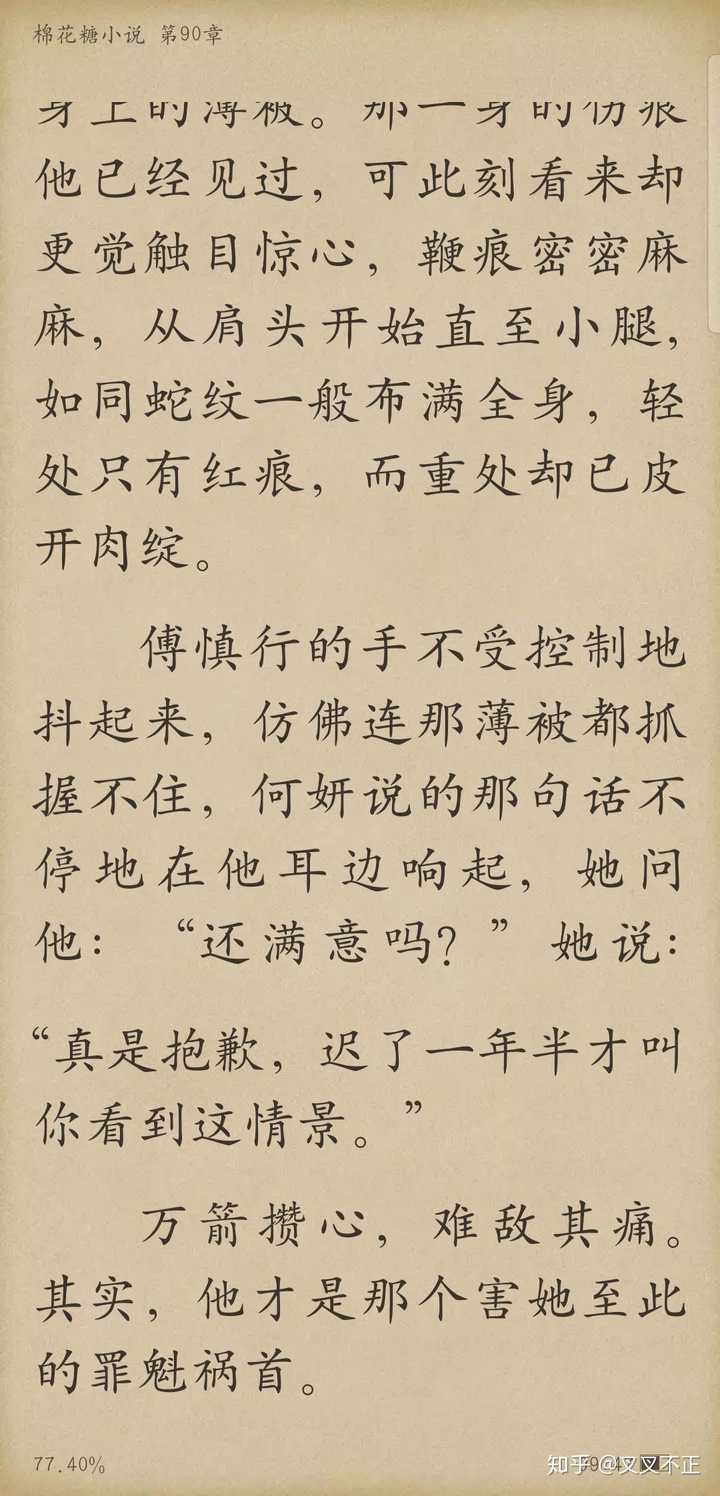 棉花糖小说 第90章
身上的薄被。那一身的伤痕
他已经见过，可此刻看来却
更觉触目惊心，鞭痕密密麻
麻，从肩头开始直至小腿，
如同蛇纹一般布满全身，轻
处只有红痕，而重处却已皮
开肉绽。
傅慎行的手不受控制地
抖起来，仿佛连那薄被都抓
握不住，何妍说的那句话不
停地在他耳边响起，她问
他：“还满意吗？”她说：
“真是抱歉，迟了一年半才叫
你看到这情景。”
万箭攒心，难敌其痛。
其实，他才是那个害她至此
的罪魁祸首。
77.40%
知乎 @叉叉不正